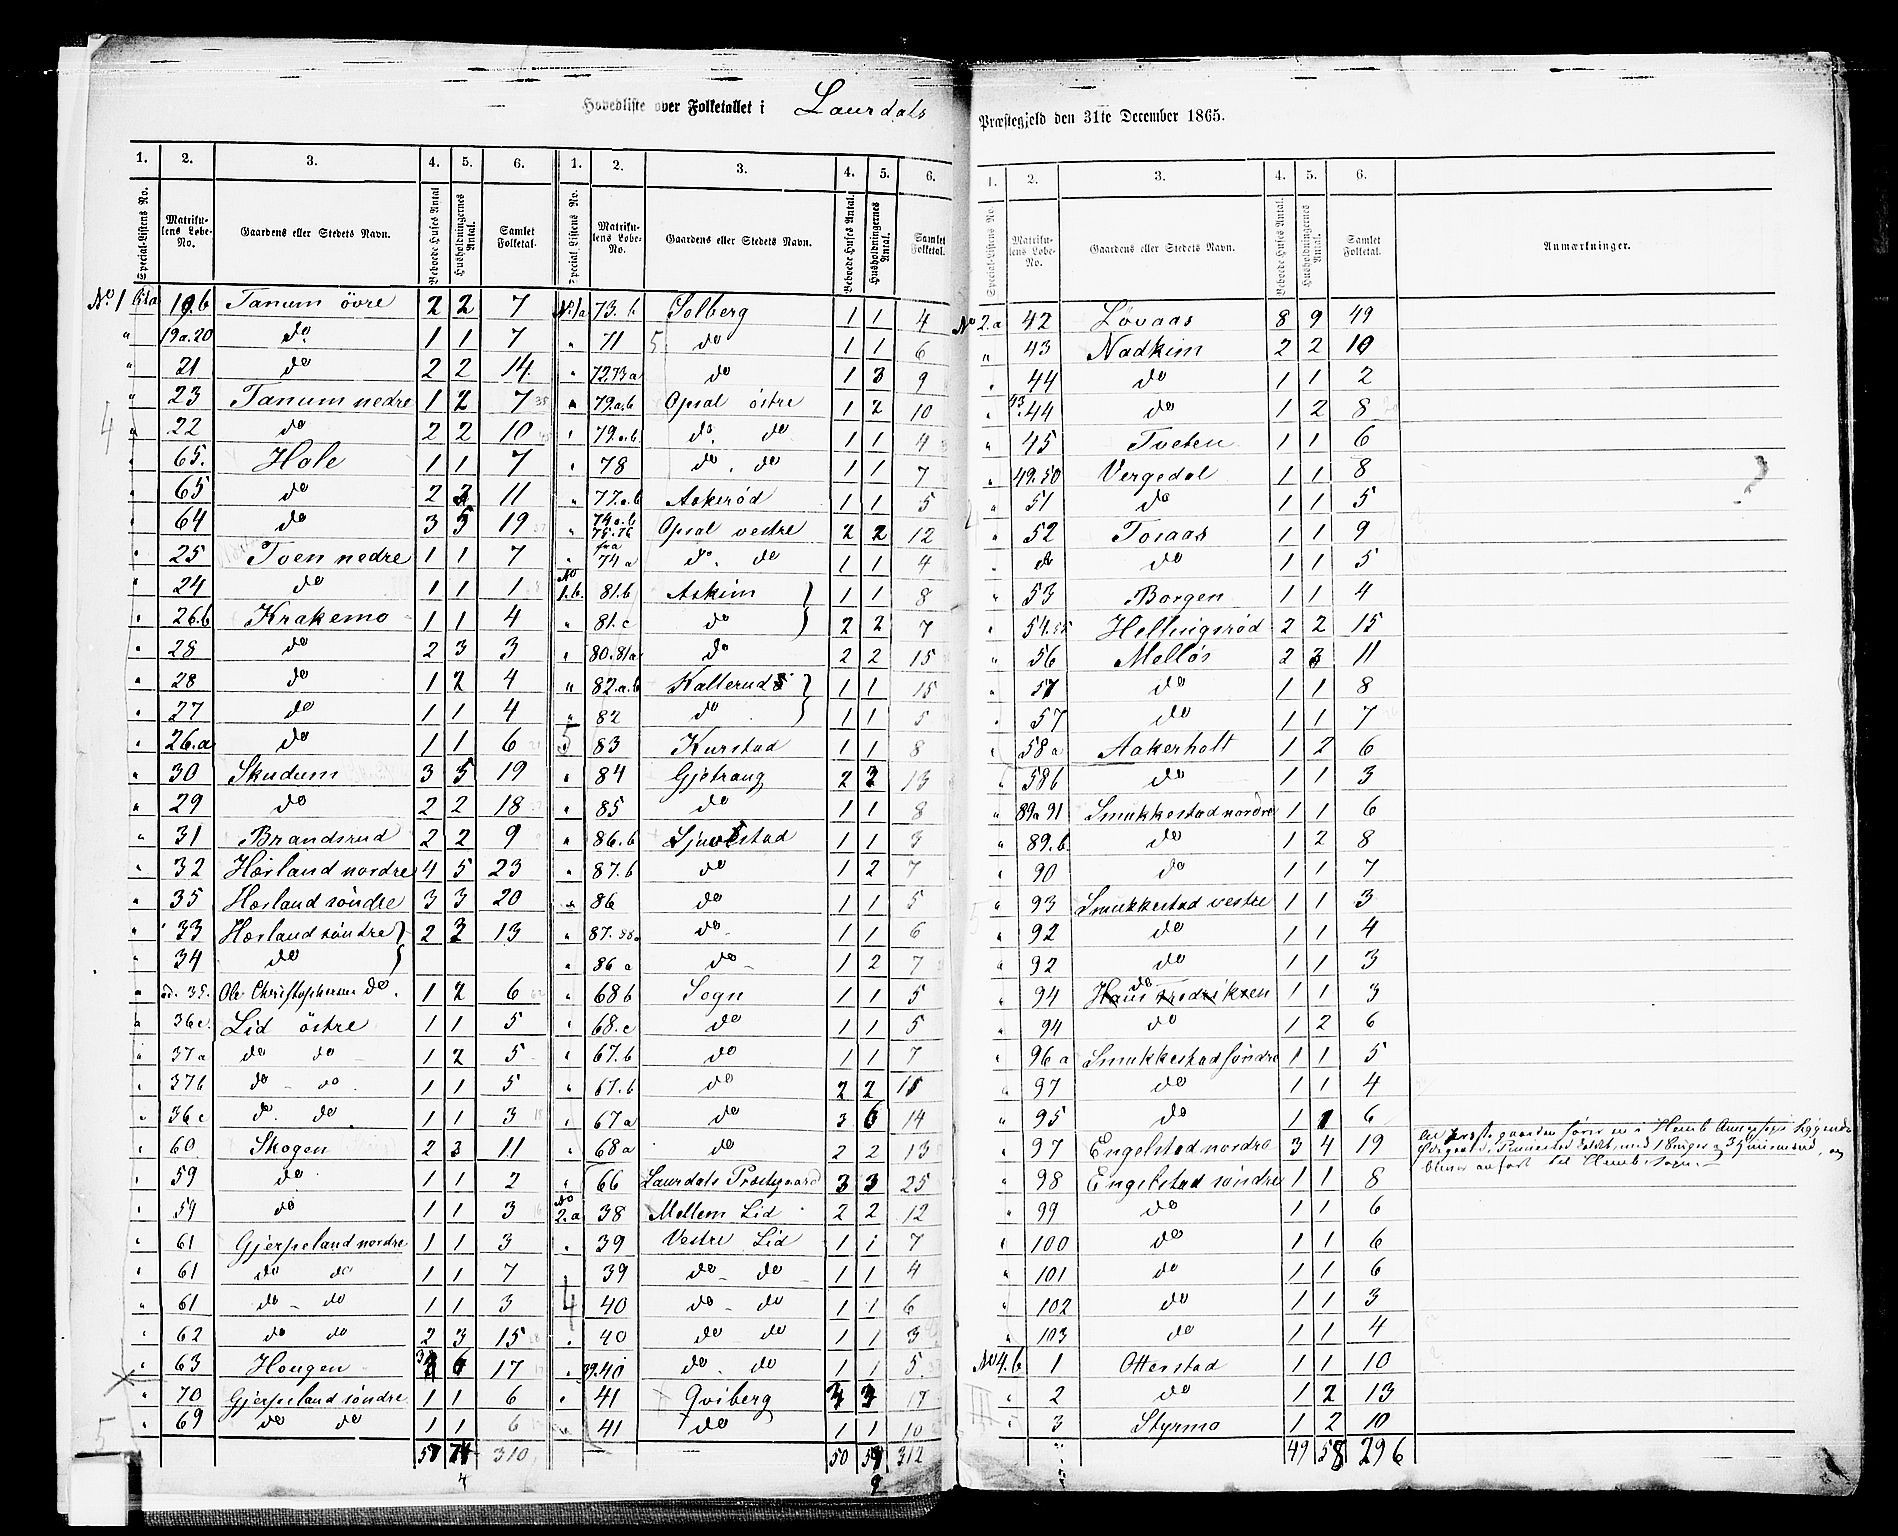 Hovedliste over Folketallet i Laurdals Præstegjeld den 31te December 1865.
1. 2. 3. 4. 5. 6. 1. 2. 3. 4. 5. 6.
Special-Listens No. Matrikulens Løbe-No. Gaardens eller Stedets Navn. Beboede Huses Antal Husholdningernes Antal. Samlet Folketal.
No 1 a 19.b Tanum övre 2 2 7
" 19a.20 do 1 1 7
" 21 do 2 2 14
" 23 Tanum nedre 1 2 7
" 22 do 2 2 10
" 65. Hole 1 1 7
" 65 do 2 3 11
" 64 do 3 5 19
" 25 Tven nedre 1 1 7
" 24 do 1 1 1
" 26.b Krakemo 1 1 4
" 28 do 2 3 3
" 28 do 1 2 4
" 27 do 1 1 4
" 26.a do 1 1 6
" 30 Skudum 3 5 19
" 29 do 2 2 18
" 31 Brandsrud 2 2 9
" 32 Hørland nordre 4 5 23
" 35 Hørland søndre 3 3 20
" 33 Hørland søndre 2 3 13
" 34 do
" ad. 35. Ole Christophersen do. 1 2 6
" 36c. Lid östre 1 1 5
" 37a do do 1 2 5
" 37b do - do 1 1 5
" 36c do. do 1 1 3
" 60. Skogen 2 3 11
" 59 do 1 1 2
" 59 do 1 1 3
" 61 Gjerpeland nordre 1 1 3
" 61 do do 1 1 7
" 61 do - do 1 1 3
" 62 do do 2 3 15
" 63 Hougen 6 17
" 70 Gjerpeland søndre 1 1 6
" 69 do do 1 1 6
57 74 310
No. 1a 73.b Solberg 1 1 4
" 71 do 1 1 6
" 72.73a do 1 3 9
" 79.a.b Opsal östre 1 2 10
" 79.a.b. do. do 1 1 4
" 78 do. do 1 1 7
" 77.a.b Aakerød 1 1 5
" 74a.b 75.76 Opsal vestre 2 2 12
" fra 74a do. do 1 1 4
No 1.b. 81.b Askim 1 1 8
" 81.c do 2 2 7
" 80.81a do 2 2 15
" 82.a.b Kallerud 1 1 15
" 82 do 1 1 5
" 83 Kurstad 1 1 8
" 84 Gjetrang 2 2 13
" 85 do 1 1 8
" 86.b Sjuestad 1 1 3
" 87.b do 1 2 7
" 86 do 1 1 5
" 87.88a do 1 1 6
" 86a do 1 2 7
" 68b Sogn 1 1 5
" 68.c do 1 1 5
" 67.b do 1 1 7
" 67.b do 2 2 15
" 67a do 3 6 14
" 68a do 2 2 13
" 66 Laurdals Præstegaard 3 3 25
No 2.a 38 Mellem Lid 2 2 12
" 39 Vestre Lid 1 1 7
" 39 do - do 1 1 4
" 40 do - do 1 1 6
" 40 do do 1 1 3
" 39.40 do. do 1 1 5
" 41 Qviberg 3 3 17
" 41 do 1 1 10
50 59 312
1. 2. 3. 4. 5. 6.
Special-Listens No. Matrikulens Løbe-No. Gaardens eller Stedets Navn. Beboede Huses Antal. Husholdningernes Antal. Samlet Folketal. Anmærkninger.
No 2.a 42 Løvaas 8 9 49
" 43 Nadkim 2 2 10
" 44 do 1 1 2
" 43.44 do 1 2 8
" 45 Tveten 1 1 6
" 49.50 Vergedal 1 1 8
" 51 do 1 1 5
" 52 Toraas 1 1 9
" do do 1 1 5
" 53 Borgen 1 1 4
" 54.55 Hellingsrød 2 2 15
" 56 Melløs 2 3 11
" 57 do 1 1 8
" 57 do 1 1 7
" 58a Aakerholt 1 2 6
" 58b do 1 1 3
" 89a 91 Smukkestad nordre 1 1 6
" 89.b. do 1 2 8
" 90 do 1 1 7
" 93 Smukkestad vestre 1 1 3
" 92 do 1 1 4
" 92 do 1 1 3
" 94 do Hans Fredriksen 1 1 3
" 94 do 1 2 6
" 96a Smukkestad søndre 1 1 5
" 97 do 1 1 4
" 95 do 1 1 6
" 97 Engelstad nordre 3 4 19
" 98 Engelstad søndre 1 1 8
" 99 do 1 1 6
" 100 do 1 1 6
" 101 do 1 1 6
" 102 do 1 1 3
" 103 do 1 1 4
No 4.b 1 Otterstad 1 1 10
" 2 do 1 2 13
" 3 Styrmo 1 2 10
49 58 296